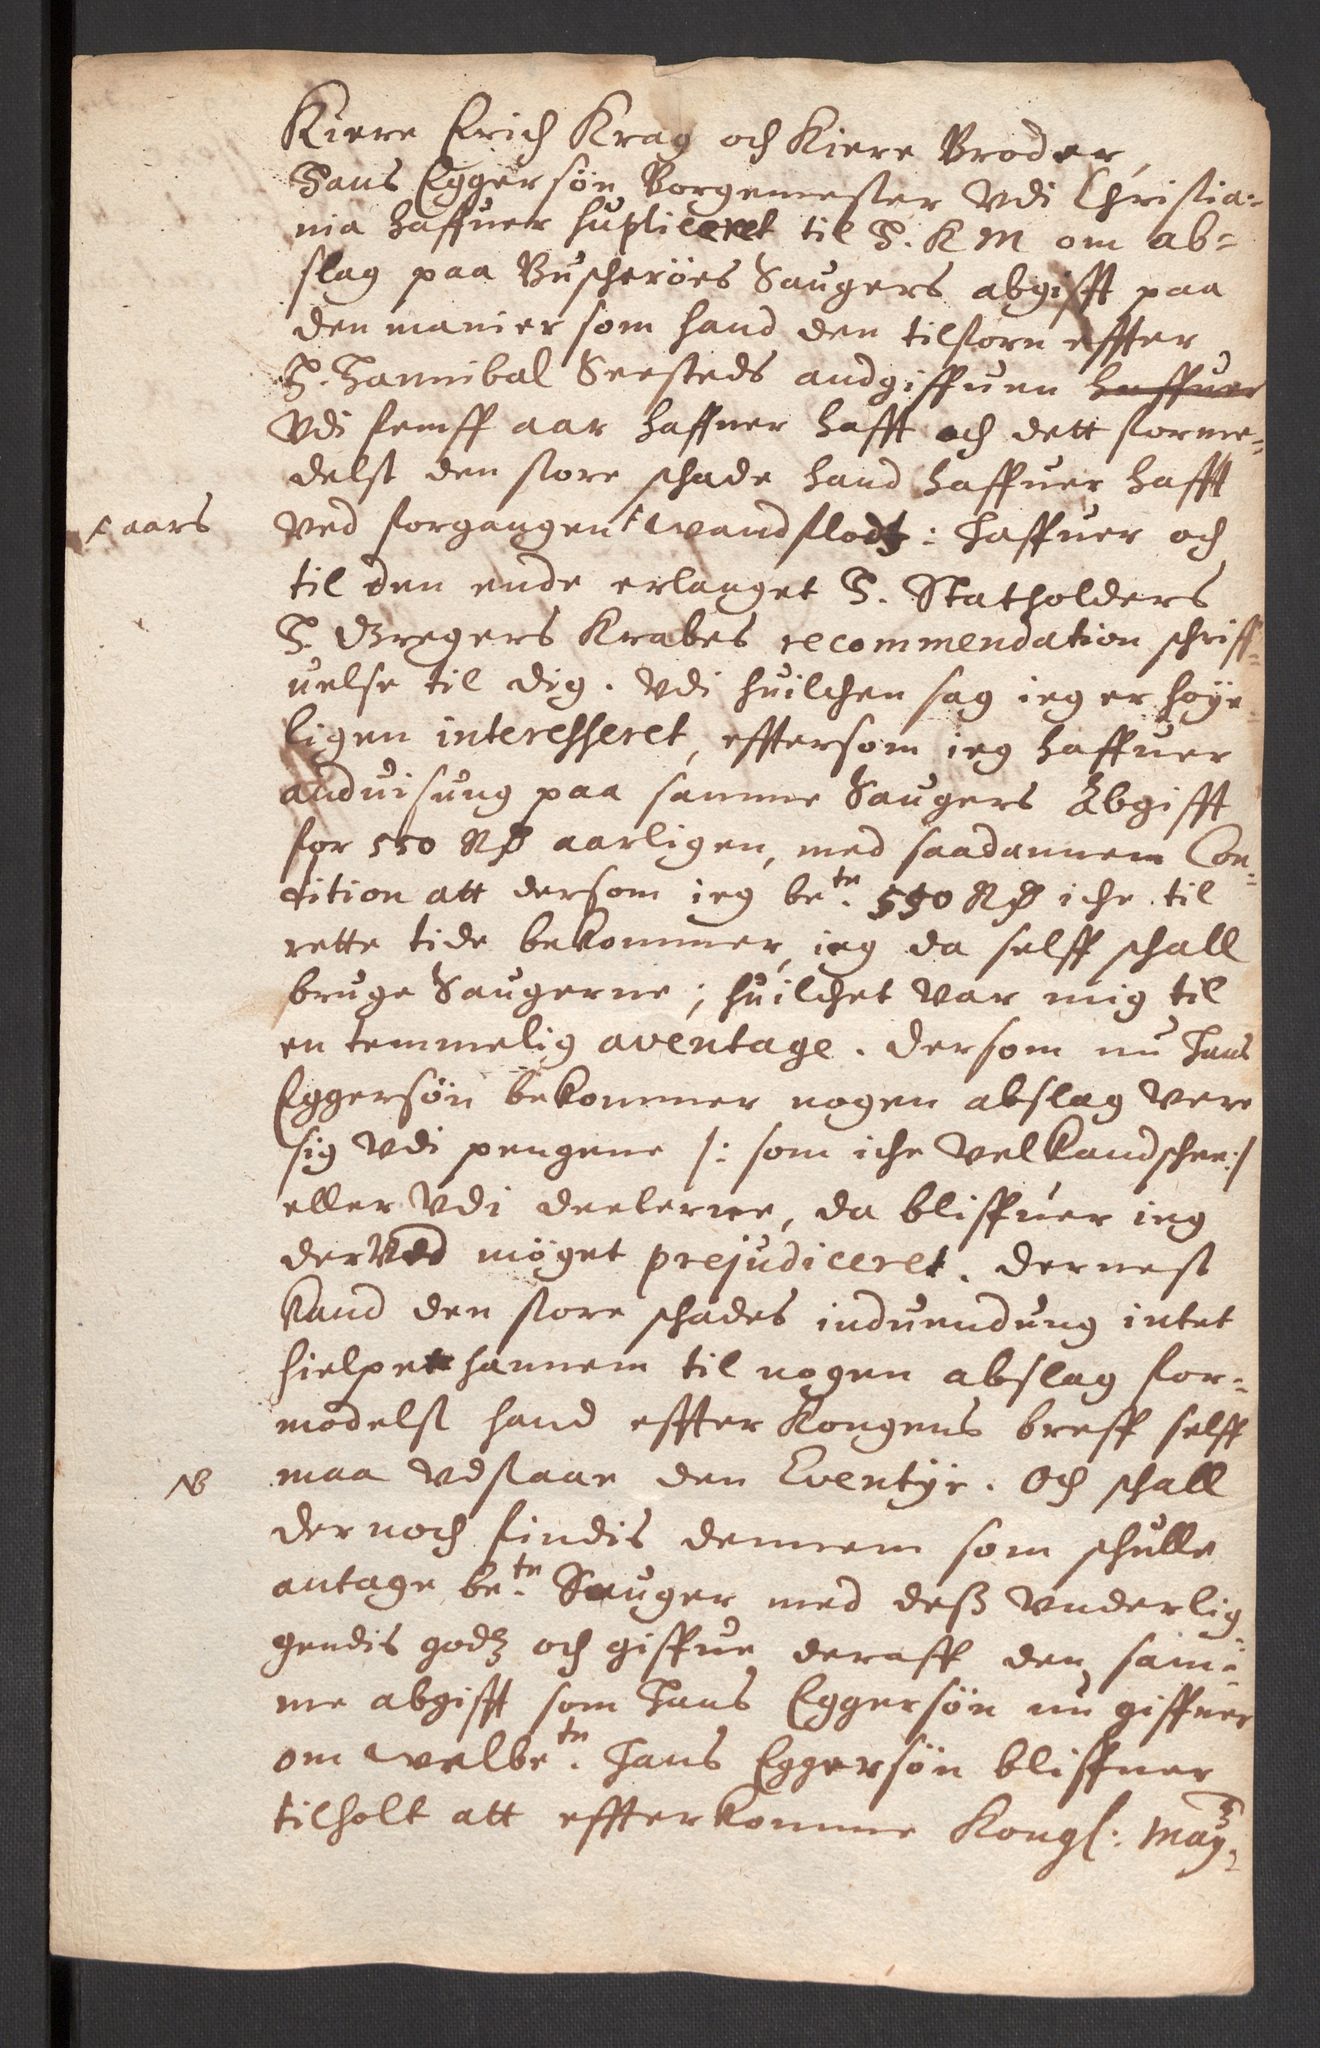 Kiere Erich Krag och Kiere Broder,
Hans Eggersøn Borgemester vdi Christia=
nia haffuer supliceret til H. K M om ab=
slag paa Buscherøes Saugers abgifft paa
den manier som hand den tilforn effter
H. Hannibal Seesteds andgiffuen haffuer
vdi femff aar haffuer hafft och dett forme=
delst den store schade hand haffuer hafft
aars
ved forgangen wandflod: haffuer och
til den ende erlanget H. Statholders
H. Gregers Krabes recommendation schriff=
uelse til dig. vdi huilchen sag ieg er høye
ligen interesseret, efftersom ieg haffuer
anduisung paa samme Saugers Abgifft
for 550 Rd aarligen, med saadannem Con=
dition att dersom ieg bete. 550 Rd iche til
rette tide bekommer, ieg da selff schall
bruge Saugerne; huilchet var mig til
en temmelig aventage. dersom nu Hans
Eggersøn bekommer nogen abslag vere
sig vdi pengene /: som iche vel kand schee:/
eller vdi deelerne, da bliffuer ieg
derved møget prejudiceret. dernest
kand den store schades induendung intet
hielpe hannem til nogen abslag for=
medelst hand effter Kongens breff selff
NB
maa vdstaae den Eventyr. Och schall
der noch findis dennem som schulle
antage bete. Sauger med dess vnderlig
gendis godz och giffue deraff den sam=
me abgifft som Hans Eggersøn nu giffuer
om welbete. Hans Eggersøn bliffuer
tilholt att effterkomme Kongl: Maytz